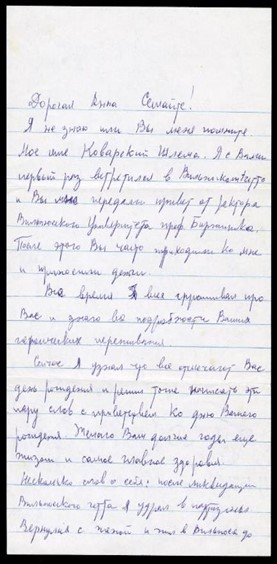 Дорогая Анна Семайте!
Я не знаю или Вы меня помните
Мое имя Коварский Шлема. Я с Вами
первый раз встретился в Вильнюском гетто
и Вы мне передали привет от ректора
Вильнюского Университета проф. Биржишка.
После этого Вы часто приходили ко мне
и приносили деньги.
Все время Я всех спрашивал про
Вас и знаю все подробности Ваших
героических переживаний.
Сейчас Я узнал что все отмечают Вас
день рождения и решил тоже написать эти
пару слов с приветствием Ко дню Вашего
рождения. Желаю Вам долгие годы еще
жизни и самое главное здоровия.
Несколько слов о себе: после ликвидации
Вильнюского гетто Я удрал в
Вернулся с женой и жил в Вильнюсе до